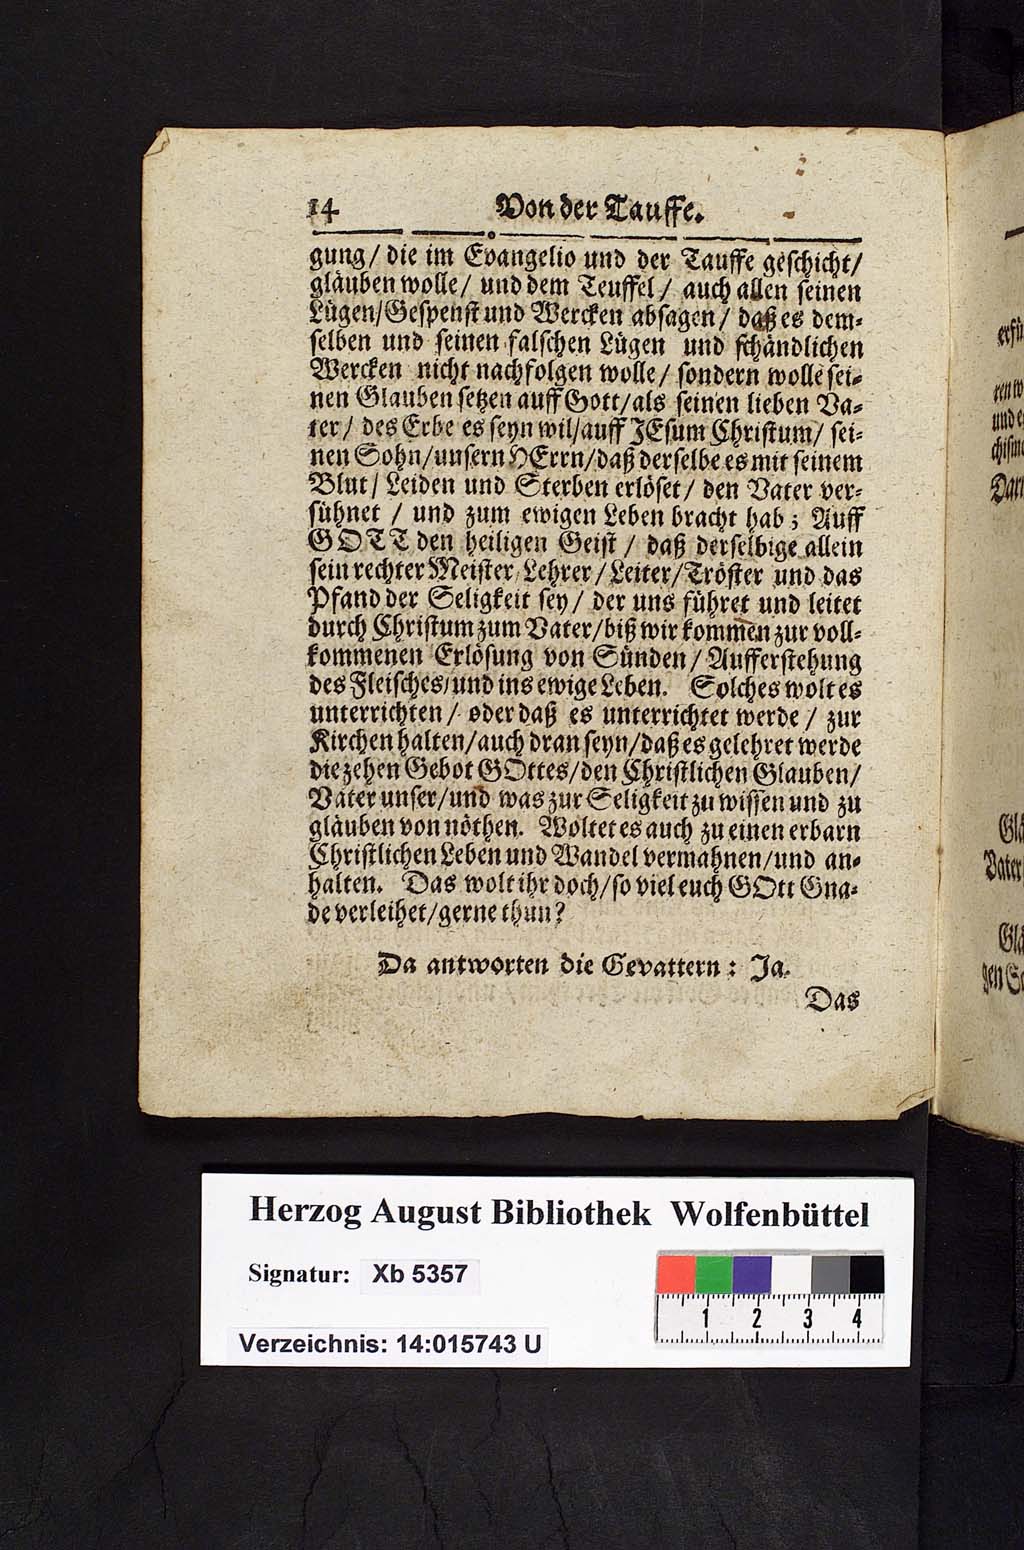 14 Von der Tauffe.
gung/ die im Evangelio und der Tauffe geschicht/
gläuben wolle/ und dem Teuffel/ auch allen seinen
Lügen/Gespenst und Wercken absagen/ daß es dem-
selben und seinen falschen Lügen und schändlichen
Wercken nicht nachfolgen wolle/ sondern wolle sei-
nen Glauben setzen auff Gott/als seinen lieben Va-
ter/ des Erbe es seyn wil/auff JEsum Christum/ sei-
nen Sohn/unsern HErrn/daß derselbe es mit seinem
Blut/ Leiden und Sterben erlöset/ den Vater ver-
sühnet / und zum ewigen Leben bracht hab; Auff
GOTT den heiligen Geist / daß derselbige allein
sein rechter Meister/Lehrer/Leiter/Tröster und das
Pfand der Seligkeit sey/ der uns führet und leitet
durch Christum zum Vater/biß wir kommen zur voll-
kommenen Erlösung von Sünden/ Aufferstehung
des Fleisches/und ins ewige Leben. Solches wolt es
unterrichten/ oder daß es unterrichtet werde/ zur
Kirchen halten/auch dran seyn/daß es gelehret werde
die zehen Gebot GOttes/den Christlichen Glauben/
Vater unser/und was zur Seligkeit zu wissen und zu
gläuben von nöthen. Woltet es auch zu einen erbarn
Christlichen Leben und Wandel vermahnen/und an-
halten. Das wolt ihr doch/so viel euch GOtt Gna-
de verleihet/gerne thun?
Da antworten die Gevattern: Ja.
Das
erfü
ren w
und e
chism
Dar
Glä
Vater
Glä
gen S
Herzog August Bibliothek Wolfenbüttel
Signatur: Xb 5357
Verzeichnis: 14:015743 U
1 2 3 4